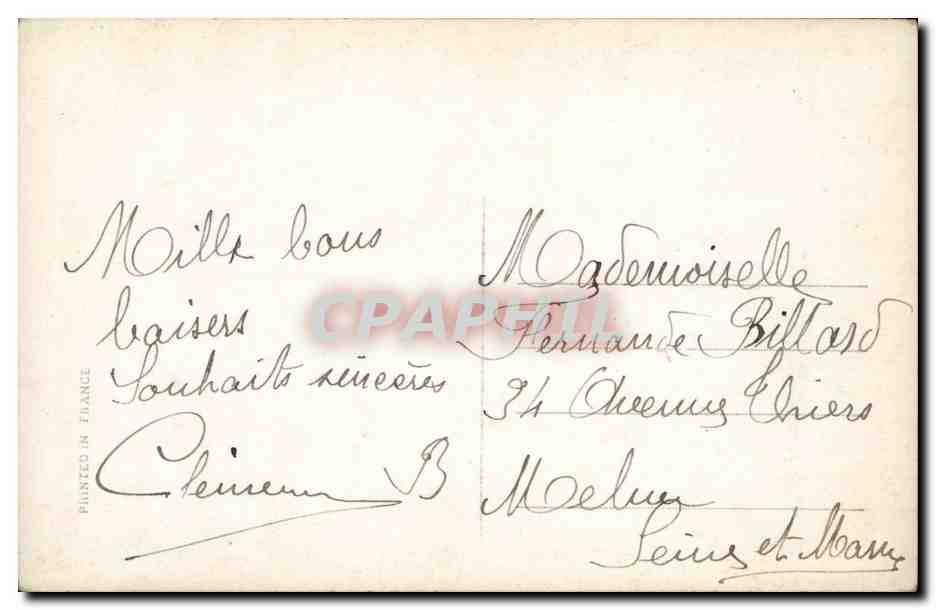 Mille bons
baisers
Souhaits sincères
B
PRINTED IN FRANCE
CPAPHIL
Mademoiselle
Fernande Billard
34 Avenue Thiers
Melun
Seine et Marne